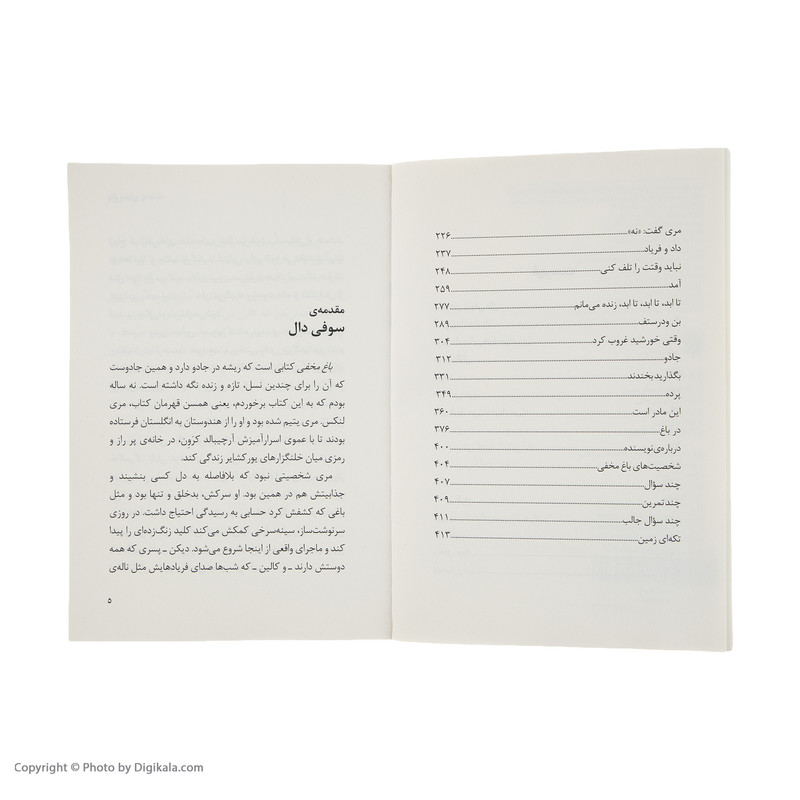 مری گفت: «نه»........۲۲۶
داد و فریاد........۲۳۷
نباید وقتت را تلف کنی........۲۴۸
آمد........۲۵۹
تا ابد، تا ابد، تا ابد، زنده می‌مانم........۲۷۷
بن ودرستف........۲۸۹
وقتی خورشید غروب کرد........۳۰۴
جادو........۳۱۲
بگذارید بخندند........۳۳۱
پرده........۳۴۹
این مادر است........۳۶۰
در باغ........۳۷۶
درباره‌ی نویسنده........۴۰۰
شخصیت‌های باغ مخفی........۴۰۴
چند سؤال........۴۰۷
چند تمرین........۴۰۹
چند سؤال جالب........۴۱۱
تکه‌ای زمین........۴۱۳
مقدمه‌ی
سوفی دال
باغ مخفی کتابی است که ریشه در جادو دارد و همین جادوست
که آن را برای چندین نسل، تازه و زنده نگه داشته است. نه ساله
بودم که به این کتاب برخوردم، یعنی همسن قهرمان کتاب، مری
لنکس. مری یتیم شده بود و او را از هندوستان به انگلستان فرستاده
بودند تا با عموی اسرارآمیزش آرچیبالد کرَون، در خانه‌ی پر راز و
رمزی میان خلنگزارهای یورکشایر زندگی کند.
مری شخصیتی نبود که بلافاصله به دل کسی بنشیند و
جذابیتش هم در همین بود. او سرکش، بدخلق و تنها بود و مثل
باغی که کشفش کرد حسابی به رسیدگی احتیاج داشت. در روزی
سرنوشت‌ساز، سینه‌سرخی کمکش می‌کند کلید زنگ‌زده‌ای را پیدا
کند و ماجرای واقعی از اینجا شروع می‌شود. دیکن ـ پسری که همه
دوستش دارند ـ و کالین ـ که شب‌ها صدای فریادهایش مثل ناله‌ی
۵
Copyright © Photo by Digikala.com